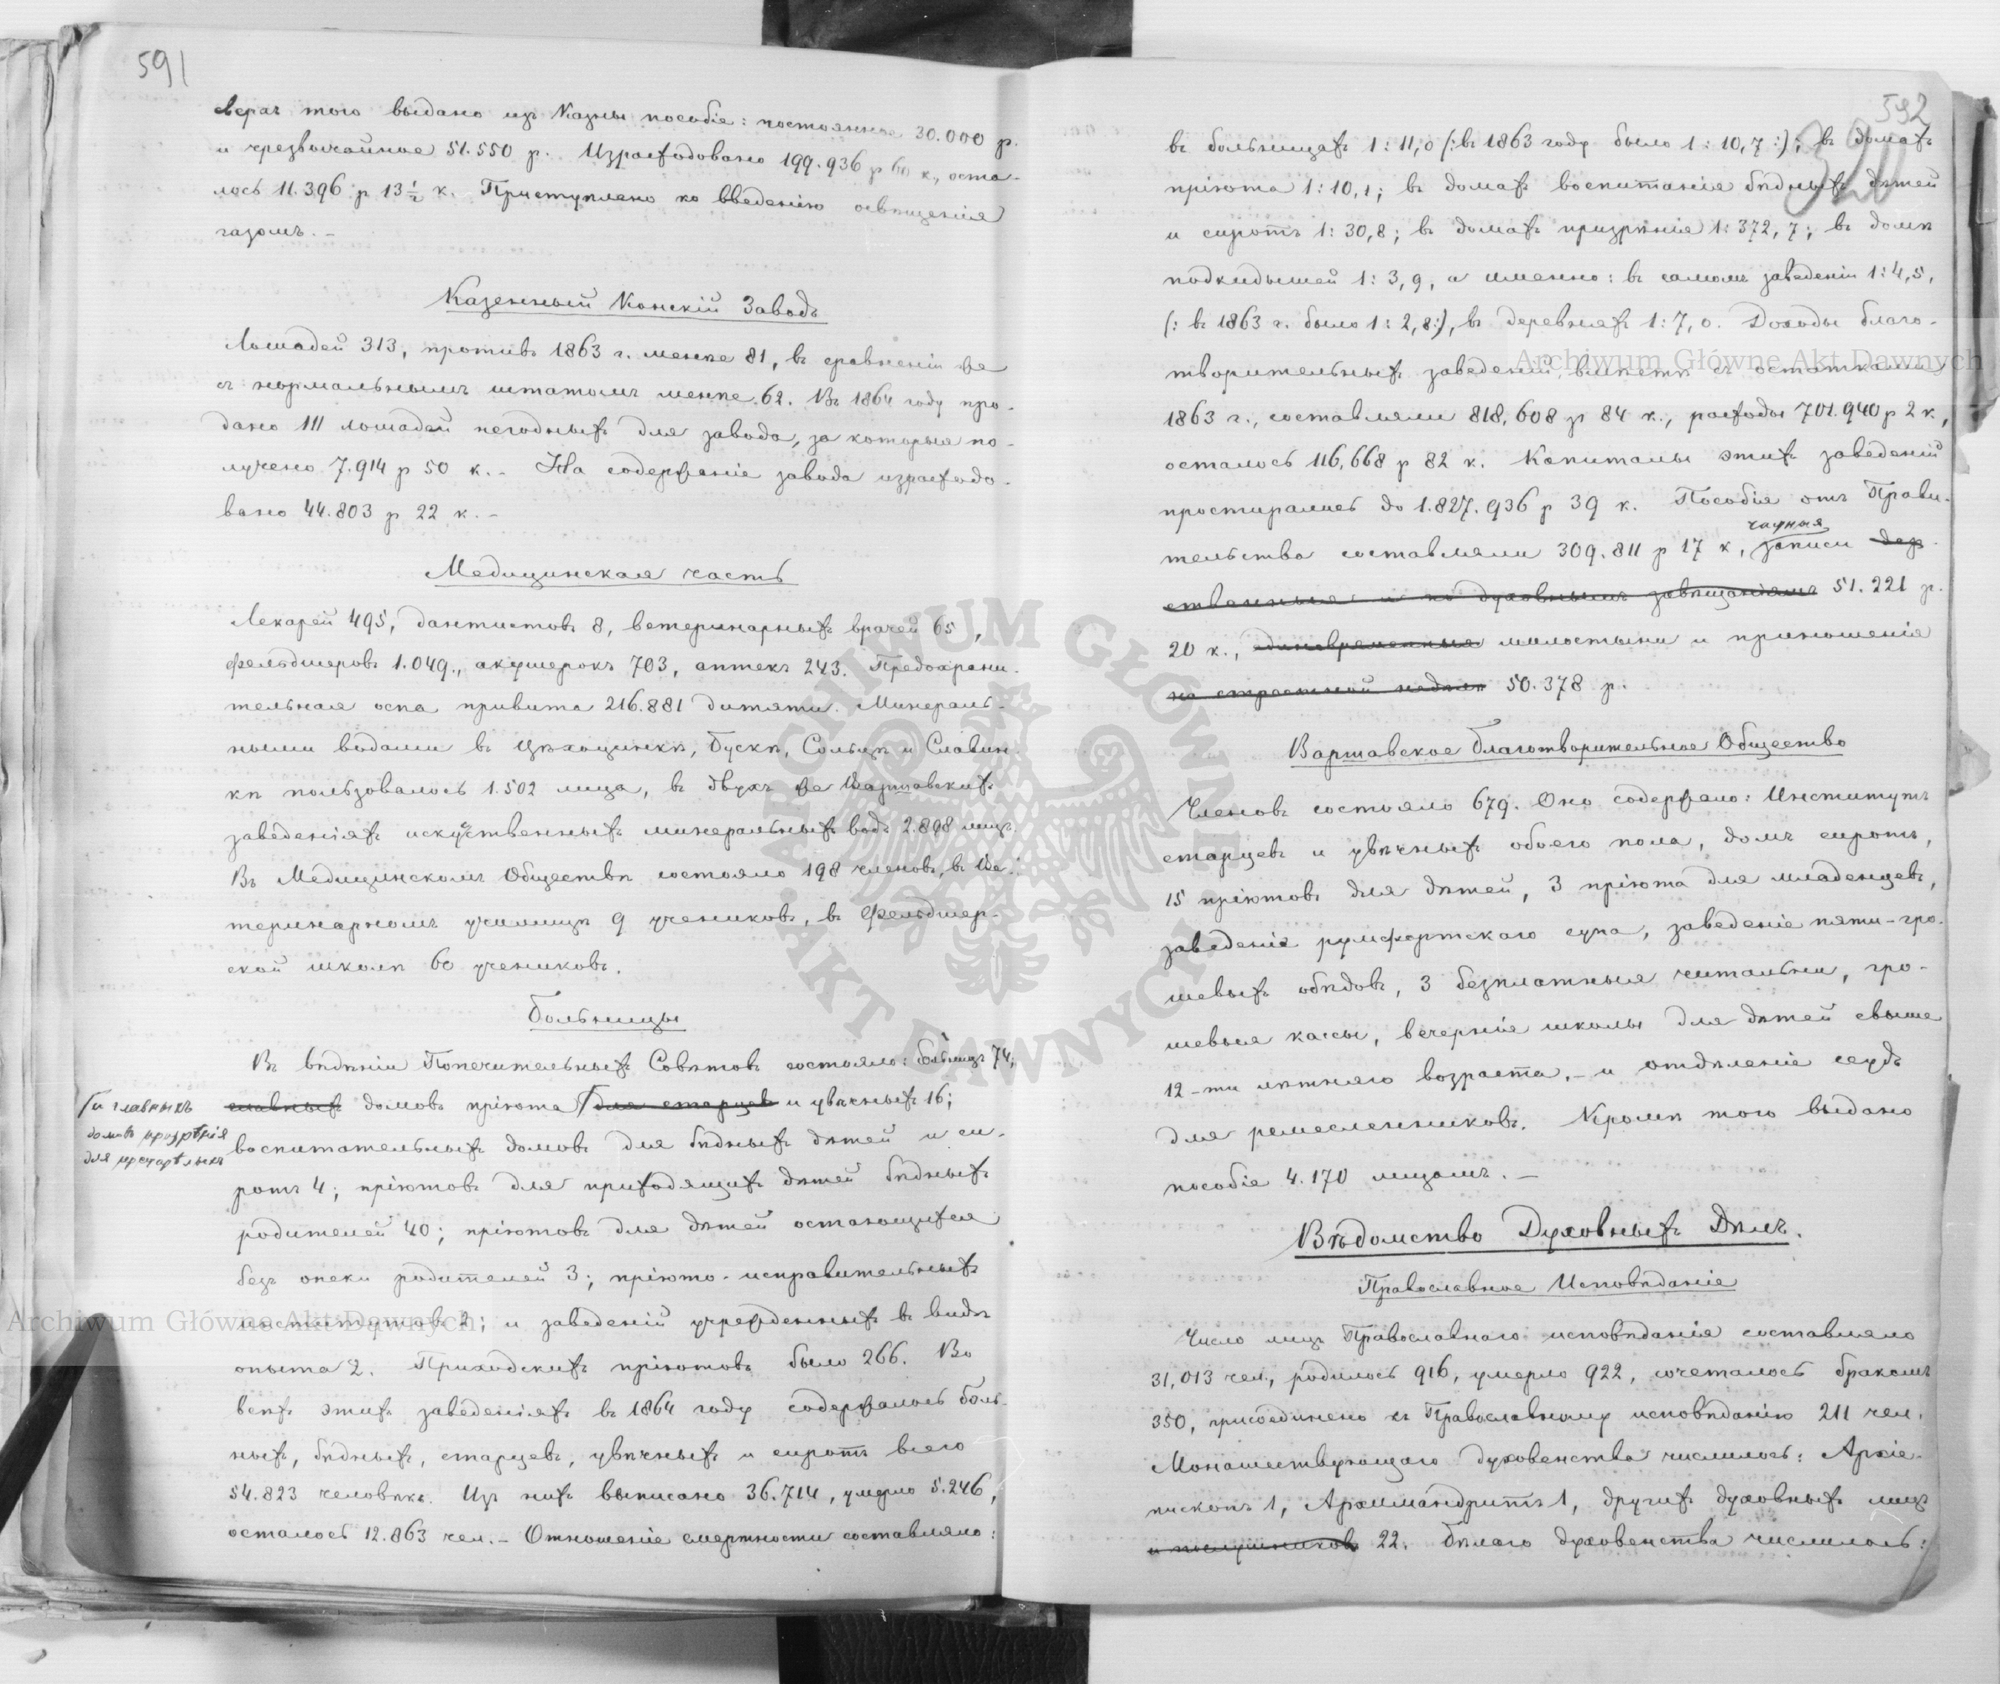 591
сверхъ того выдано изъ Казны пособіе: постоянное 30.000 р.
и чрезвычайное 51.550 р. Израсходовано 199.936 р 60 к., оста-
лось 11.396 р 13 1/2 к. Приступлено ко введенію освѣщенія
газомъ. -
Казенный Конскій Заводъ
Лошадей 313, противъ 1863 г. менѣе 81, въ сравненіи же
съ нормальнымъ штатомъ менѣе 62. Въ 1864 году про-
дано 111 лошадей негодныхъ для завода, за которыя по-
лучено 7.914 р 50 к. - На содержаніе завода израсходо-
вано 44.803 р 22 к. -
Медицинская часть
Лекарей 495, дантистовъ 8, ветеринарныхъ врачей 65,
фельдшеровъ 1.049., акушерокъ 703, аптекъ 243. Предохрани-
тельная оспа привита 216.881 дитяти. Минераль-
ными водами въ Цѣхоцинкѣ, Бускѣ, Сольцѣ и Славин-
кѣ пользовалось 1.502 лица, въ двухъ же Варшавскихъ
заведеніяхъ искуственныхъ минеральныхъ водъ 2.898 лицъ.
Въ Медицинскомъ Обществѣ состояло 198 членовъ, въ Ве-
теринарномъ училищѣ 9 учениковъ, въ Фельдшер-
ской школѣ 60 учениковъ.
Больницы
Въ вѣдѣніи Попечительныхъ Совѣтовъ состояло: больницъ 74;
главныхъ домовъ пріюта для старцевъ и увѣчныхъ 16;
и главныхъ
домовъ призрѣнія
для престарѣлыхъ
воспитательныхъ домовъ для бѣдныхъ дѣтей и си-
ротъ 4; пріютовъ для приходящихъ дѣтей бѣдныхъ
родителей 40; пріютовъ для дѣтей остающихся
безъ опеки родителей 3; пріюто-исправительныхъ
институтовъ 2; и заведеній учрежденныхъ въ видѣ
опыта 2. Приходскихъ пріютовъ было 266. Во
всѣхъ этихъ заведеніяхъ въ 1864 году содержалось боль-
ныхъ, бѣдныхъ, старцевъ, увѣчныхъ и сиротъ всего
54.823 человѣкъ. Изъ нихъ выписано 36.714, умерло 5.246,
осталось 12.863 чел. - Отношеніе смертности составляло:
592
въ больницахъ 1:11,0 (:въ 1863 году было 1:10,7:); въ домахъ
пріюта 1:10,1; въ домахъ воспитанія бѣдныхъ дѣтей
и сиротъ 1:30,8; въ домахъ призрѣнія 1:372,7; въ домѣ
подкидышей 1:3,9, а именно: въ самомъ заведеніи 1:4,5,
(: въ 1863 г. было 1:2,8:), въ деревняхъ 1:7,0. Доходы благо-
творительныхъ заведеній, вмѣстѣ съ остатками
1863 г., составляли 818,608 р 84 к., расходы 701.940 р 2 к,
осталось 116,668 р 82 к. Капиталы этихъ заведеній
простирались до 1.827.936 р 39 к. Пособія отъ Прави-
тельства составляли 309.811 р 17 к,
частныя
записи
51.221 р.
20 к., единовременныя милостыни и приношенія
на страстной недѣлѣ 50.378 р.
Варшавское Благотворительное Общество
Членовъ состояло 679. Оно содержало: Институтъ
старцевъ и увѣчныхъ обоего пола, домъ сиротъ,
15 пріютовъ для дѣтей, 3 пріюта для младенцевъ,
заведеніе румфортскаго супа, заведеніе пяти-гро-
шевыхъ обѣдовъ, 3 безплатныя читальни, гро-
шевыя кассы, вечернія школы для дѣтей свыше
12-ти лѣтняго возраста, - и отдѣленіе ссудъ
для ремесленниковъ. Кромѣ того выдано
пособіе 4.170 лицамъ. -
Вѣдомство Духовныхъ Дѣлъ.
Православное Исповѣданіе
Число лицъ Православнаго исповѣданія составляло
31,013 чел., родилось 916, умерло 922, сочеталось бракомъ
350, присоединено къ Православному исповѣданію 211 чел.
Монашествующаго духовенства числилось: Архіе-
пископъ 1, Архимандритъ 1, другихъ духовныхъ лицъ
и послушниковъ 22. Бѣлаго духовенства числилось:
Archiwum Główne Akt Dawnych
Archiwum Główne Akt Dawnych
ARCHIWUM GŁÓWNE · AKT DAWNYCH ·